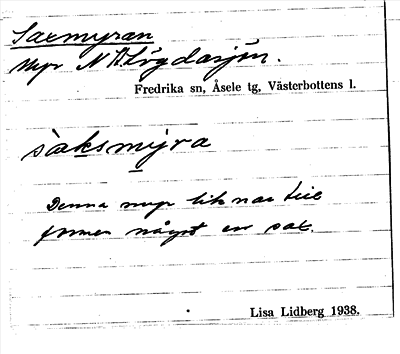 Saxmyran
Myr N Högdasjön.
Fredrika sn, Åsele tg, Västerbottens l.
sàksmýra
Denna myr liknar till
formen något en sax.
Lisa Lidberg 1938.